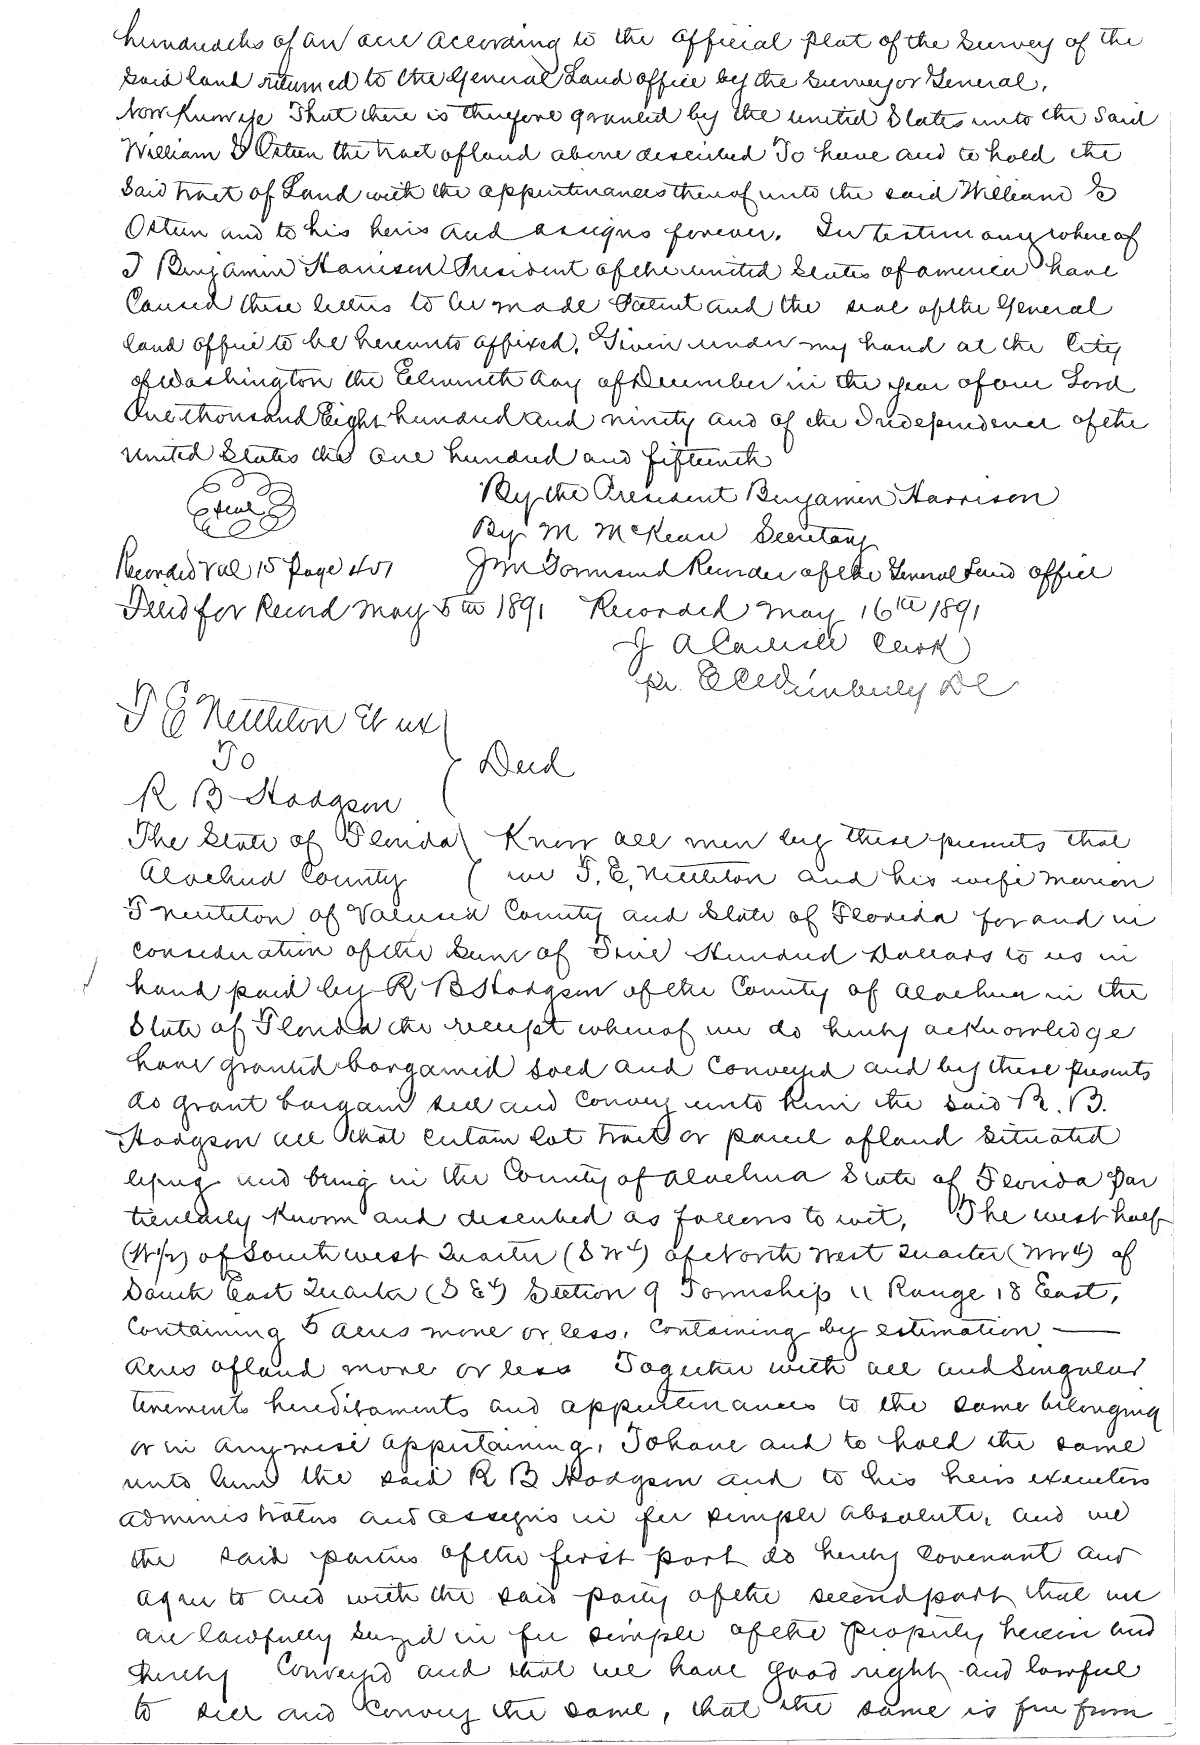 hundredths of an acre according to the official plat of the Survey of the
said land returned to the General Land office by the Surveyor General.
Now Know ye That there is therefore granted by the united States unto the Said
William Osteen the tract of land above described To have and to hold the
Said tract of Land with the appurtenances thereof unto the said William
Osteen and to his heirs and assigns forever. In testimony whereof
I Benjamin Harrison President of the united States of america have
Caused these letters to be made Patent and the seal of the General
land office to be hereunto affixed. Given under my hand at the City
of Washington the Eleventh day of December in the year of our Lord
One thousand Eight hundred and ninety and of the Independence of the
united States the one hundred and fifteenth
Seal
By the President Benjamin Harrison
By M McKean Secretary
Recorded Vol 15 Page Townsend Recorder of the General Land office
Filed for Record may 5th 1891 Recorded may 16th 1891
J A Carlisle Clerk
pr. Wimberly DC
T E Nettleton Et ux
To } Deed
R B Hodgson
The State of Florida ) Know all men by these presents that
Alachua County ( we T. E. Nettleton and his wife Marion
T Nettleton of Valusia County and State of Florida for and in
consideration of the Sum of Five Hundred Dollars to us in
hand paid by R B Hodgson of the County of Alachua in the
State of Florida the receipt whereof we do hereby acknowledge
have granted bargained sold and Conveyed and by these presents
do grant bargain sell and Convey unto him the said R. B.
Hodgson all that certain lot tract or parcel of land Situated
lying and being in the County of Alachua State of Florida Par
ticularly Known and described as follows to wit, The west half
(W/2) of South west Quarter (S W 4) of North West Quarter (NW4) of
South East Quarter (S E 4) Section 9 Township 11 Range 18 East,
Containing 5 acres more or less. Containing by estimation —
acres of land more or less Together with all and Singular
tenements hereditaments and appurtenances to the same belonging
or in anywise appertaining. To have and to hold the same
unto him the said R B Hodgson and to his heirs executors
administrators and assigns in fee simple absolute. and we
the said parties of the first part do hereby covenant and
agree to and with the said party of the second part that we
are lawfully seized in fee simple of the property herein and
hereby Conveyed and that we have good right and lawful
to sell and Convey the same, that the same is free from